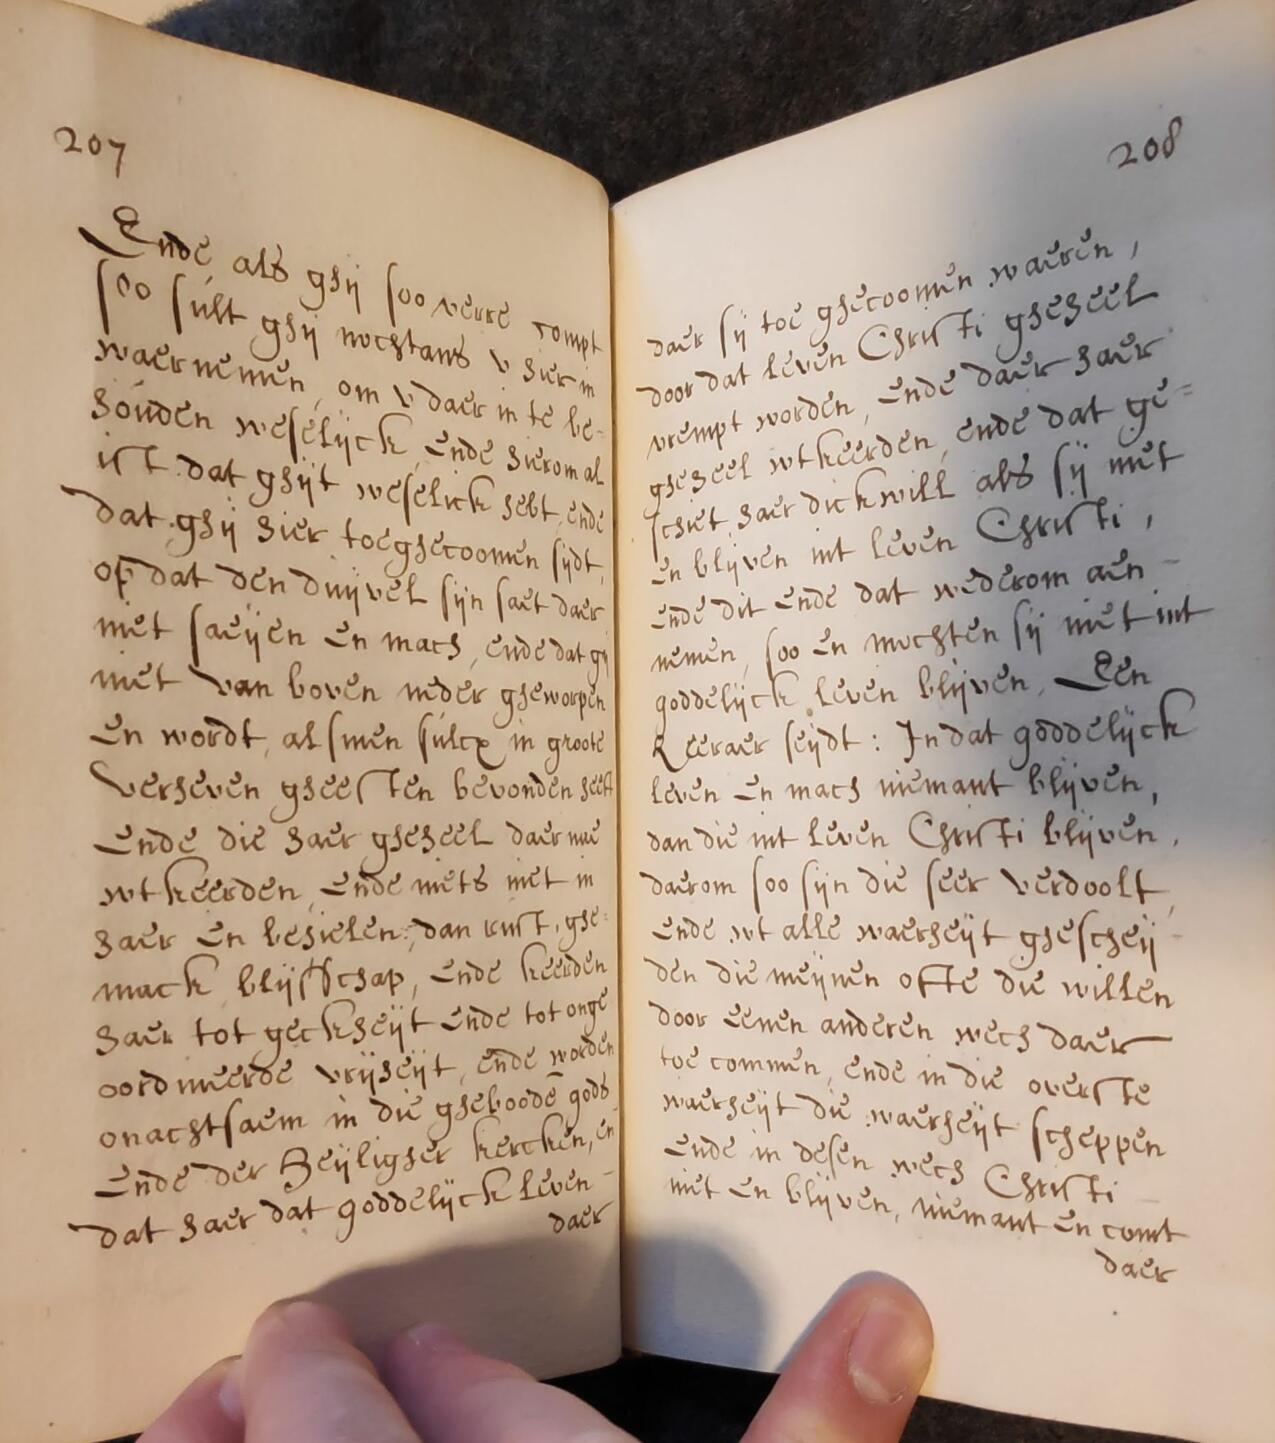 207
Ende als ghij soo verre compt
soo sult ghij nochtans v hier in
waernemen, om v daer in te be-
houden weselijck, ende hierom al
ist dat ghijt weselick hebt, ende
dat ghij hier toeghecoomen sijdt,
op dat den duijvel sijn saet daer
niet saeijen en mach, ende dat gij
niet van boven neder gheworpen
en wordt, alsmen sulcx in groote
verheven gheesten bevonden heeft
Ende die haer gheheel daer nae
wtkeerden, ende niets niet in
haer en behielen, dan rust, ghe-
mack blijsschap, ende keerden
haer tot geckheijt ende tot onge
oordineerde vrijheijt, ende worden
onachtsaem in die gheboodē gods
Ende der Heijligher kercken, en
dat haer dat goddelijck leven
daer
208
daer sij toe ghecoomen waeren,
door dat leven Christi gheheel
vrempt worden, ende daer haer
gheheel wtkeerden, ende dat ge-
schiet haer dickwill als sij niet
en blijven int leven Christi,
ende dit ende dat wederom aen-
nemen, soo en mochten sij niet int
goddelijck leven blijven, Een
Leeraer seijdt: In dat goddelijck
leven en mach niemant blijven,
dan die int leven Christi blijven,
daerom soo sijn die seer verdoolt,
ende wt alle waerheijt ghescheij-
den die meijnen ofte die willen
door eenen anderen wech daer
toe commen, ende in die overste
waerheijt die waerheijt scheppen
ende in desen wech Christi
niet en blijven, niemant en comt
daer